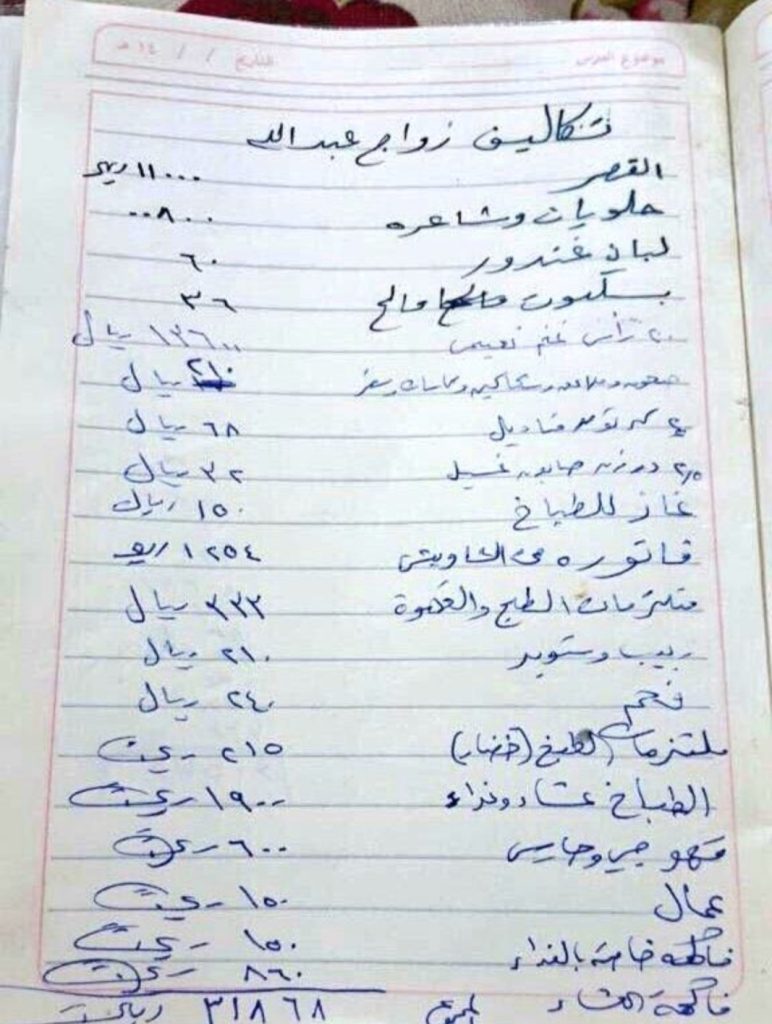 موضوع الدرس التاريخ / / ١٤ هـ
تكاليف زواج عبدالله
القصر ١١٠٠٠ ريال
حلويات وشاعره ٨٠٠
لبان غندور ٦٠
بسكوت مالح ٣٦
٢٠ رأس غنم نعيمي ١٣٦٠٠ ريال
صحون وملاعق وسكاكين وكاسات وسفر ٢١٠ ريال
٢ كرتون مناديل ٦٨ ريال
٢٫٥ درزن صابون غسيل ٣٢ ريال
غاز للطباخ ١٥٠ ريال
فاتوره من الشاويش ١٢٥٤ ريال
متلزمات الطبخ والقهوة ٣٣٣ ريال
٢١٠ ريال
فحم ٢٤٠ ريال
ملتزمات الطبخ (خضار) ٢١٥ ريال
الطباخ عشاء وغداء ١٩٠٠ ريال
قهوجي وحارس ٦٠٠ ريال
عمال ١٥٠ ريال
فاكهه خاصة بالغداء ١٥٠ ريال
فاكهة العشاء ٨٦٠ ريال
المجموع ٣١٨٦٨ ريال